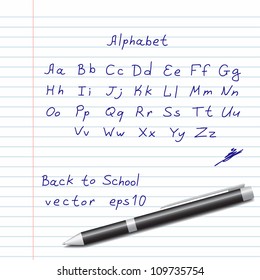 Alphabet
Aa Bb Cc Dd Ee Ff Gg
Hh Ii Jj Kk Ll Mm Nn
Oo Pp Qq Rr Ss Tt Uu
Vv Ww Xx Yy Zz
Back to School
vector eps10
shutterstock.com · 109735754